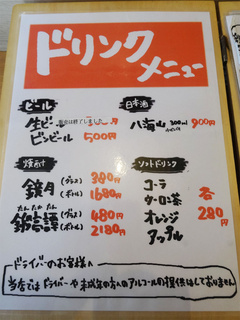 ドリンク
メニュー
ビール
生ビール
ビンビール 500円
日本酒
八海山 300ml 900円
焼酎
鏡月 (グラス) 380円
(ボトル) 1680円
たん たか たん
鍛高譚 (グラス) 480円
(ボトル) 2180円
ソフトドリンク
コーラ
ウーロン茶
オレンジ
アップル
各
280円
ドライバーのお客様へ
当店では ドライバーや未成年の方へのアルコールの提供はしておりません